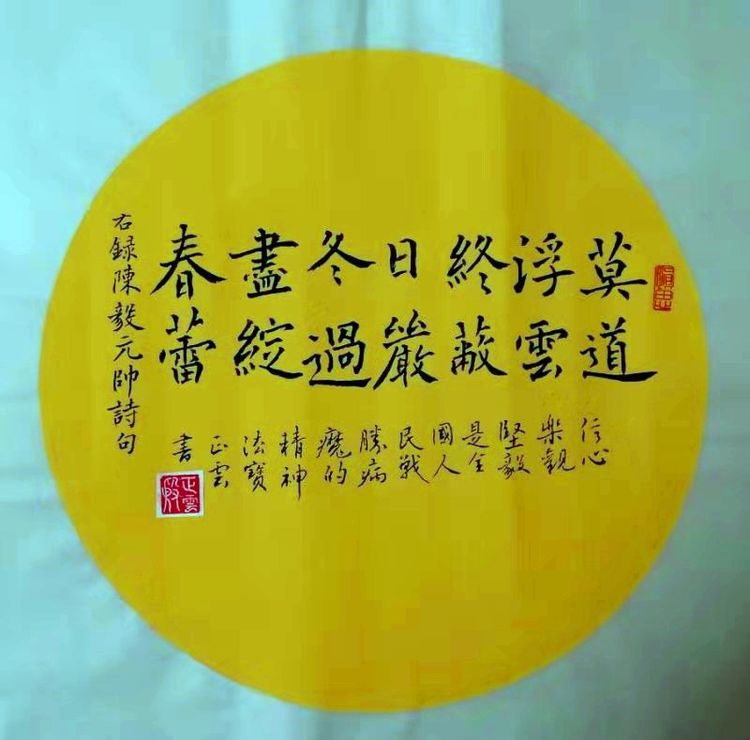 莫道
浮雲
終蔽
日嚴
冬過
盡綻
春蕾
右録陳毅元帥詩句
信心
樂觀
堅毅
是全
國人
民戰
勝病
魔的
精神
法寶
正雲
書
正雲